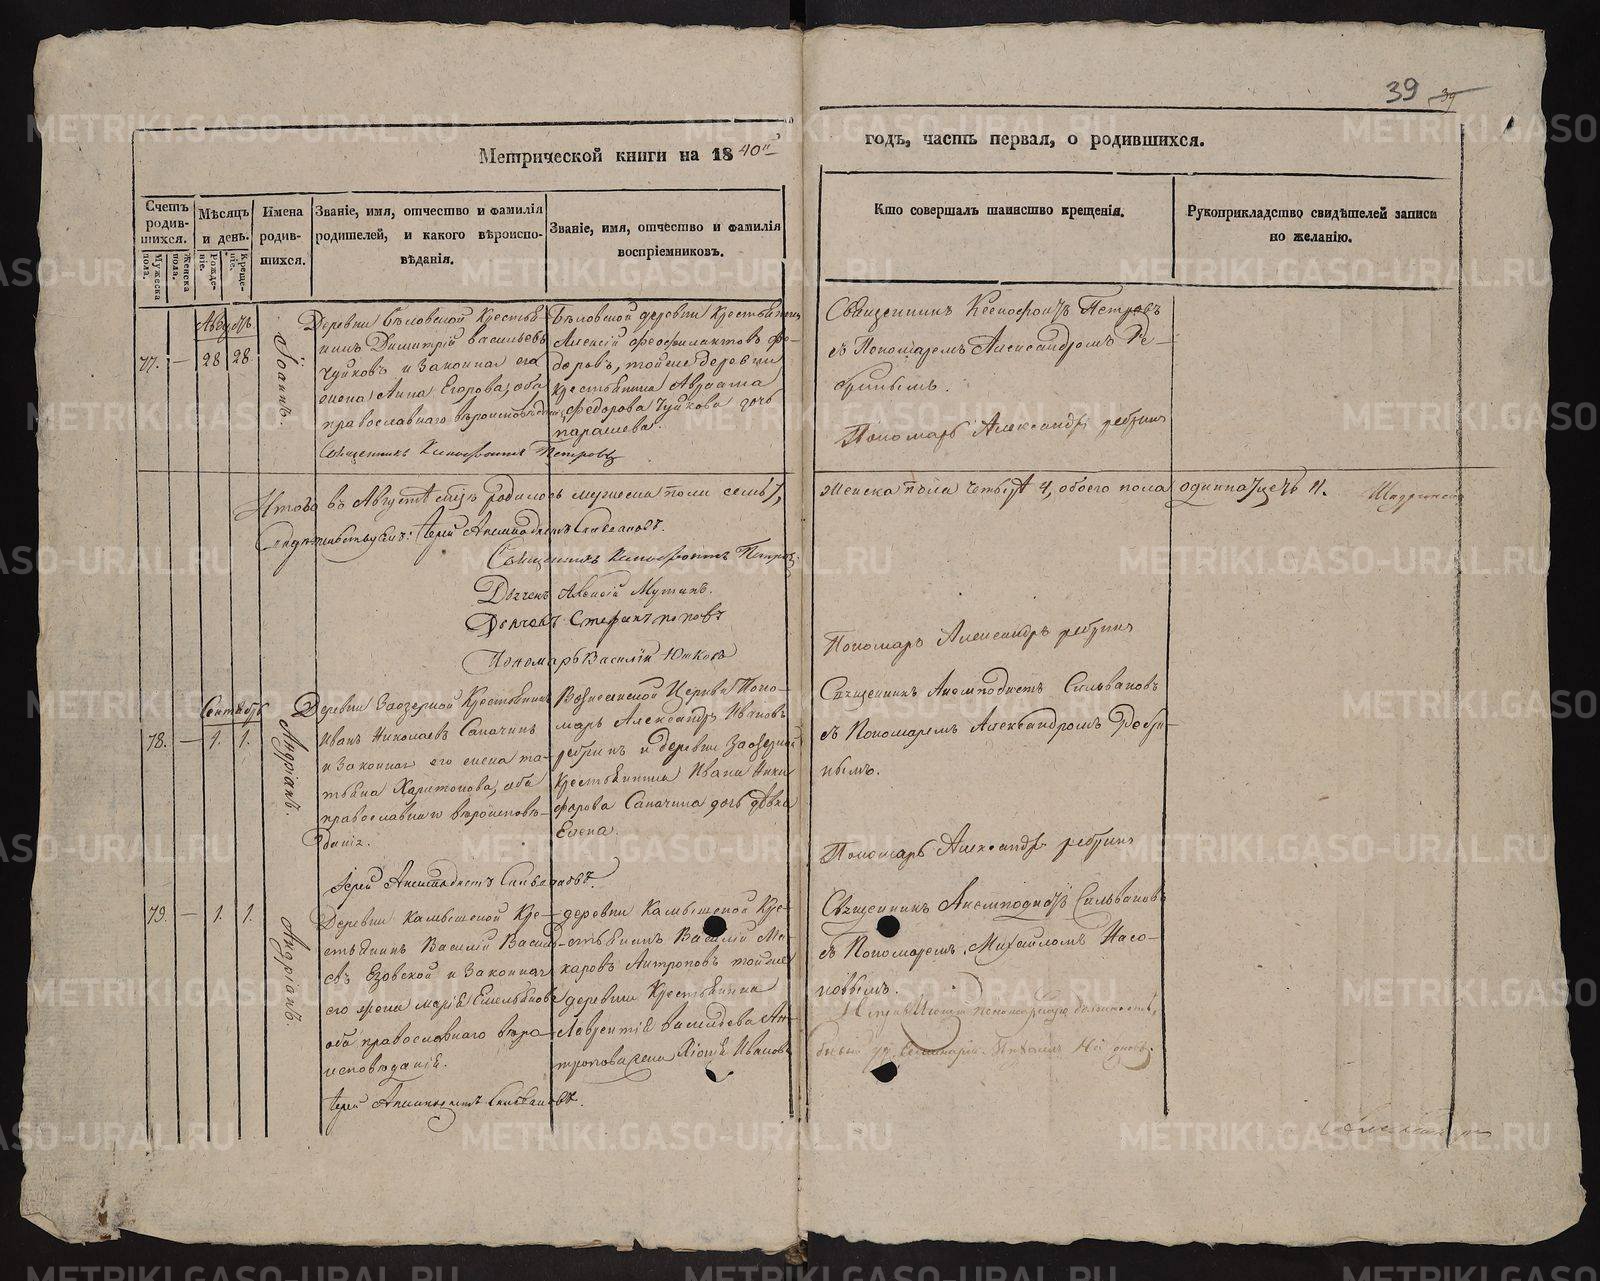 39 39
Метрической книги на 1840й
годъ, часть первая, о родившихся.
Счетъ родив-шихся.
Мужеска пола.
Женска пола.
Мѣсяцъ и день.
Рожде-нiе.
Креще-нiе.
Имена родив-шихся.
Званiе, имя, отчество и фамилiя родителей, и какого вѣроиспо-вѣданiя.
Званiе, имя, отчество и фамилiя воспрiемниковъ.
Кто совершалъ таинство крещенiя.
Рукоприкладство свидѣтелей записи по желанiю.
Августъ
77. — 28 28
Іоаннъ.
Деревни Бѣловской Крестья-
нинъ Димитрій Васильевъ
Чуйковъ и законная его
жена Анна Егорова, оба
православнаго вѣроисповѣданія
Священникъ Ксенофонтъ Петровъ
Бѣловской деревни Крестьянинъ
Алексій Феофилактовъ Фе-
доровъ, тойже деревни
крестьянина
Федорова Чуйкова дочь
Священникъ Ксенофонтъ Петровъ
съ Пономаремъ Александромъ Ре-
бринымъ.
Пономарь Александръ Ребринъ
Итого въ Августѣ мцѣ родилось мужеска пола семь 7,
женска пола четыре 4, обоего пола одиннадцать 11.
Іерей Анемподистъ Сильвановъ.
Священникъ Ксенофонтъ Петровъ
Дьячекъ Алексій Мутинъ.
Дьячекъ Стефанъ Поповъ
Пономарь Василій Юшковъ
Пономарь Александръ Ребринъ
Сентябрь
78. — 1. 1.
Андріанъ.
Деревни Заозерной Крестьянинъ
Иванъ Николаевъ Сапачинъ
и законная его жена Та-
тьяна Харитонова, оба
православнаго вѣроисповѣ-
данія.
Іерей Анемподистъ Сильвановъ.
Вознесенской Церкви Поно-
марь Александръ Ивановъ
Ребринъ и деревни Заозерной
крестьянина Ивана Ники
форова Сапачина дочь дѣвка
Елена.
Священникъ Анемподистъ Сильвановъ
съ Пономаремъ Александромъ Ребри-
нымъ.
Пономарь Александръ Ребринъ
79. — 1. 1.
Андріанъ.
Деревни Камышеной Кре-
стьянинъ Василій Василь-
евъ Езовской и законная
его жена Марія Емельянова
оба православнаго вѣро-
исповѣданія.
Іерей Анемподистъ Сильвановъ.
деревни Камышеной Кре-
стьянинъ Василій Ма-
каровъ Антроповъ тойже
деревни Крестьянина
Лаврентія Васильева Ан-
тропова жена Ивановa
Священникъ Анемподистъ Сильвановъ
съ Пономаремъ Михаиломъ Насо-
новымъ.
Исправляющій пономарскую должность,
METRIKI.GASO-URAL.RU